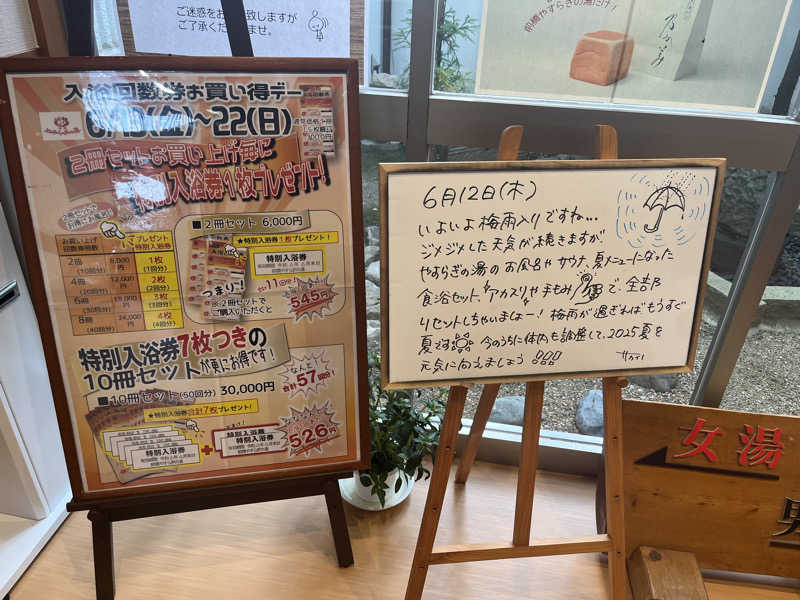 ご迷惑をお
致しますが
ご了承ください
ませ
前橋やすらぎの湯だけ!
入浴回数券お買い得デー
6/13(金)~22(日)
2冊セットお買い上げ毎に
特別入浴券1枚プレゼント!
お買い上げ
回数券冊数
プレゼント
特別入浴券
2冊
(10回分)
6,000円
1枚
(1回分)
4冊
(20回分)
12,000円
2枚
(2回分)
6冊
(30回分)
18,000円
3枚
(3回分)
8冊
(40回分)
24,000円
4枚
(4回分)
■2冊セット 6,000円
★特別入浴券1枚プレゼント!
特別入浴券
つまり!
※2冊セットで
ご購入いただくと
合計11回分
545円
特別入浴券7枚つきの
10冊セットが更にお得です!
■10冊セット(50回分) 30,000円
★特別入浴券合計7枚プレゼント!
なんと
合計57回分!
特別入浴券
+
特別入浴券
526円
6月12日(木)
いよいよ梅雨入りですね…
ジメジメした天気が続きますが
やすらぎの湯のお風呂やサウナ、夏メニューになった
食浴セット、アカスリやもみほぐしで、全部
リセットしちゃいましょー!梅雨が過ぎればもうすぐ
夏です 今のうちに体内も調整して、2025夏を
元気に向えましょう!!!
女湯
男